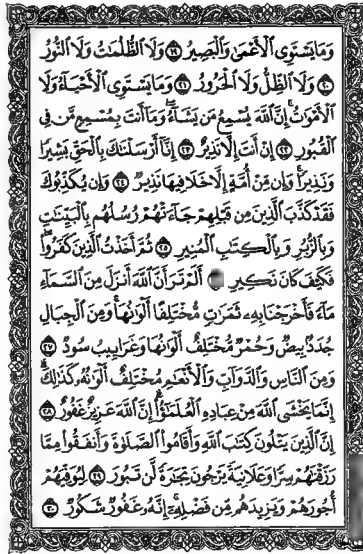 وَمَا يَسْتَوِى ٱلْأَعْمَىٰ وَٱلْبَصِيرُ ۝١٩ وَلَا ٱلظُّلُمَٰتُ وَلَا ٱلنُّورُ
۝٢٠ وَلَا ٱلظِّلُّ وَلَا ٱلْحَرُورُ ۝٢١ وَمَا يَسْتَوِى ٱلْأَحْيَآءُ وَلَا
ٱلْأَمْوَٰتُ ۚ إِنَّ ٱللَّهَ يُسْمِعُ مَن يَشَآءُ ۖ وَمَآ أَنتَ بِمُسْمِعٍ مَّن فِى
ٱلْقُبُورِ ۝٢٢ إِنْ أَنتَ إِلَّا نَذِيرٌ ۝٢٣ إِنَّآ أَرْسَلْنَٰكَ بِٱلْحَقِّ بَشِيرًا
وَنَذِيرًا ۚ وَإِن مِّنْ أُمَّةٍ إِلَّا خَلَا فِيهَا نَذِيرٌ ۝٢٤ وَإِن يُكَذِّبُوكَ
فَقَدْ كَذَّبَ ٱلَّذِينَ مِن قَبْلِهِمْ جَآءَتْهُمْ رُسُلُهُم بِٱلْبَيِّنَٰتِ
وَبِٱلزُّبُرِ وَبِٱلْكِتَٰبِ ٱلْمُنِيرِ ۝٢٥ ثُمَّ أَخَذْتُ ٱلَّذِينَ كَفَرُوا۟ ۖ
فَكَيْفَ كَانَ نَكِيرِ أَلَمْ تَرَ أَنَّ ٱللَّهَ أَنزَلَ مِنَ ٱلسَّمَآءِ
مَآءً فَأَخْرَجْنَا بِهِۦ ثَمَرَٰتٍ مُّخْتَلِفًا أَلْوَٰنُهَا ۚ وَمِنَ ٱلْجِبَالِ
جُدَدٌۢ بِيضٌ وَحُمْرٌ مُّخْتَلِفٌ أَلْوَٰنُهَا وَغَرَابِيبُ سُودٌ ۝٢٧
وَمِنَ ٱلنَّاسِ وَٱلدَّوَآبِّ وَٱلْأَنْعَٰمِ مُخْتَلِفٌ أَلْوَٰنُهُۥ كَذَٰلِكَ ۗ
إِنَّمَا يَخْشَى ٱللَّهَ مِنْ عِبَادِهِ ٱلْعُلَمَٰٓؤُا۟ ۗ إِنَّ ٱللَّهَ عَزِيزٌ غَفُورٌ ۝٢٨
إِنَّ ٱلَّذِينَ يَتْلُونَ كِتَٰبَ ٱللَّهِ وَأَقَامُوا۟ ٱلصَّلَوٰةَ وَأَنفَقُوا۟ مِمَّا
رَزَقْنَٰهُمْ سِرًّا وَعَلَانِيَةً يَرْجُونَ تِجَٰرَةً لَّن تَبُورَ ۝٢٩ لِيُوَفِّيَهُمْ
أُجُورَهُمْ وَيَزِيدَهُم مِّن فَضْلِهِۦٓ ۚ إِنَّهُۥ غَفُورٌ شَكُورٌ ۝٣٠